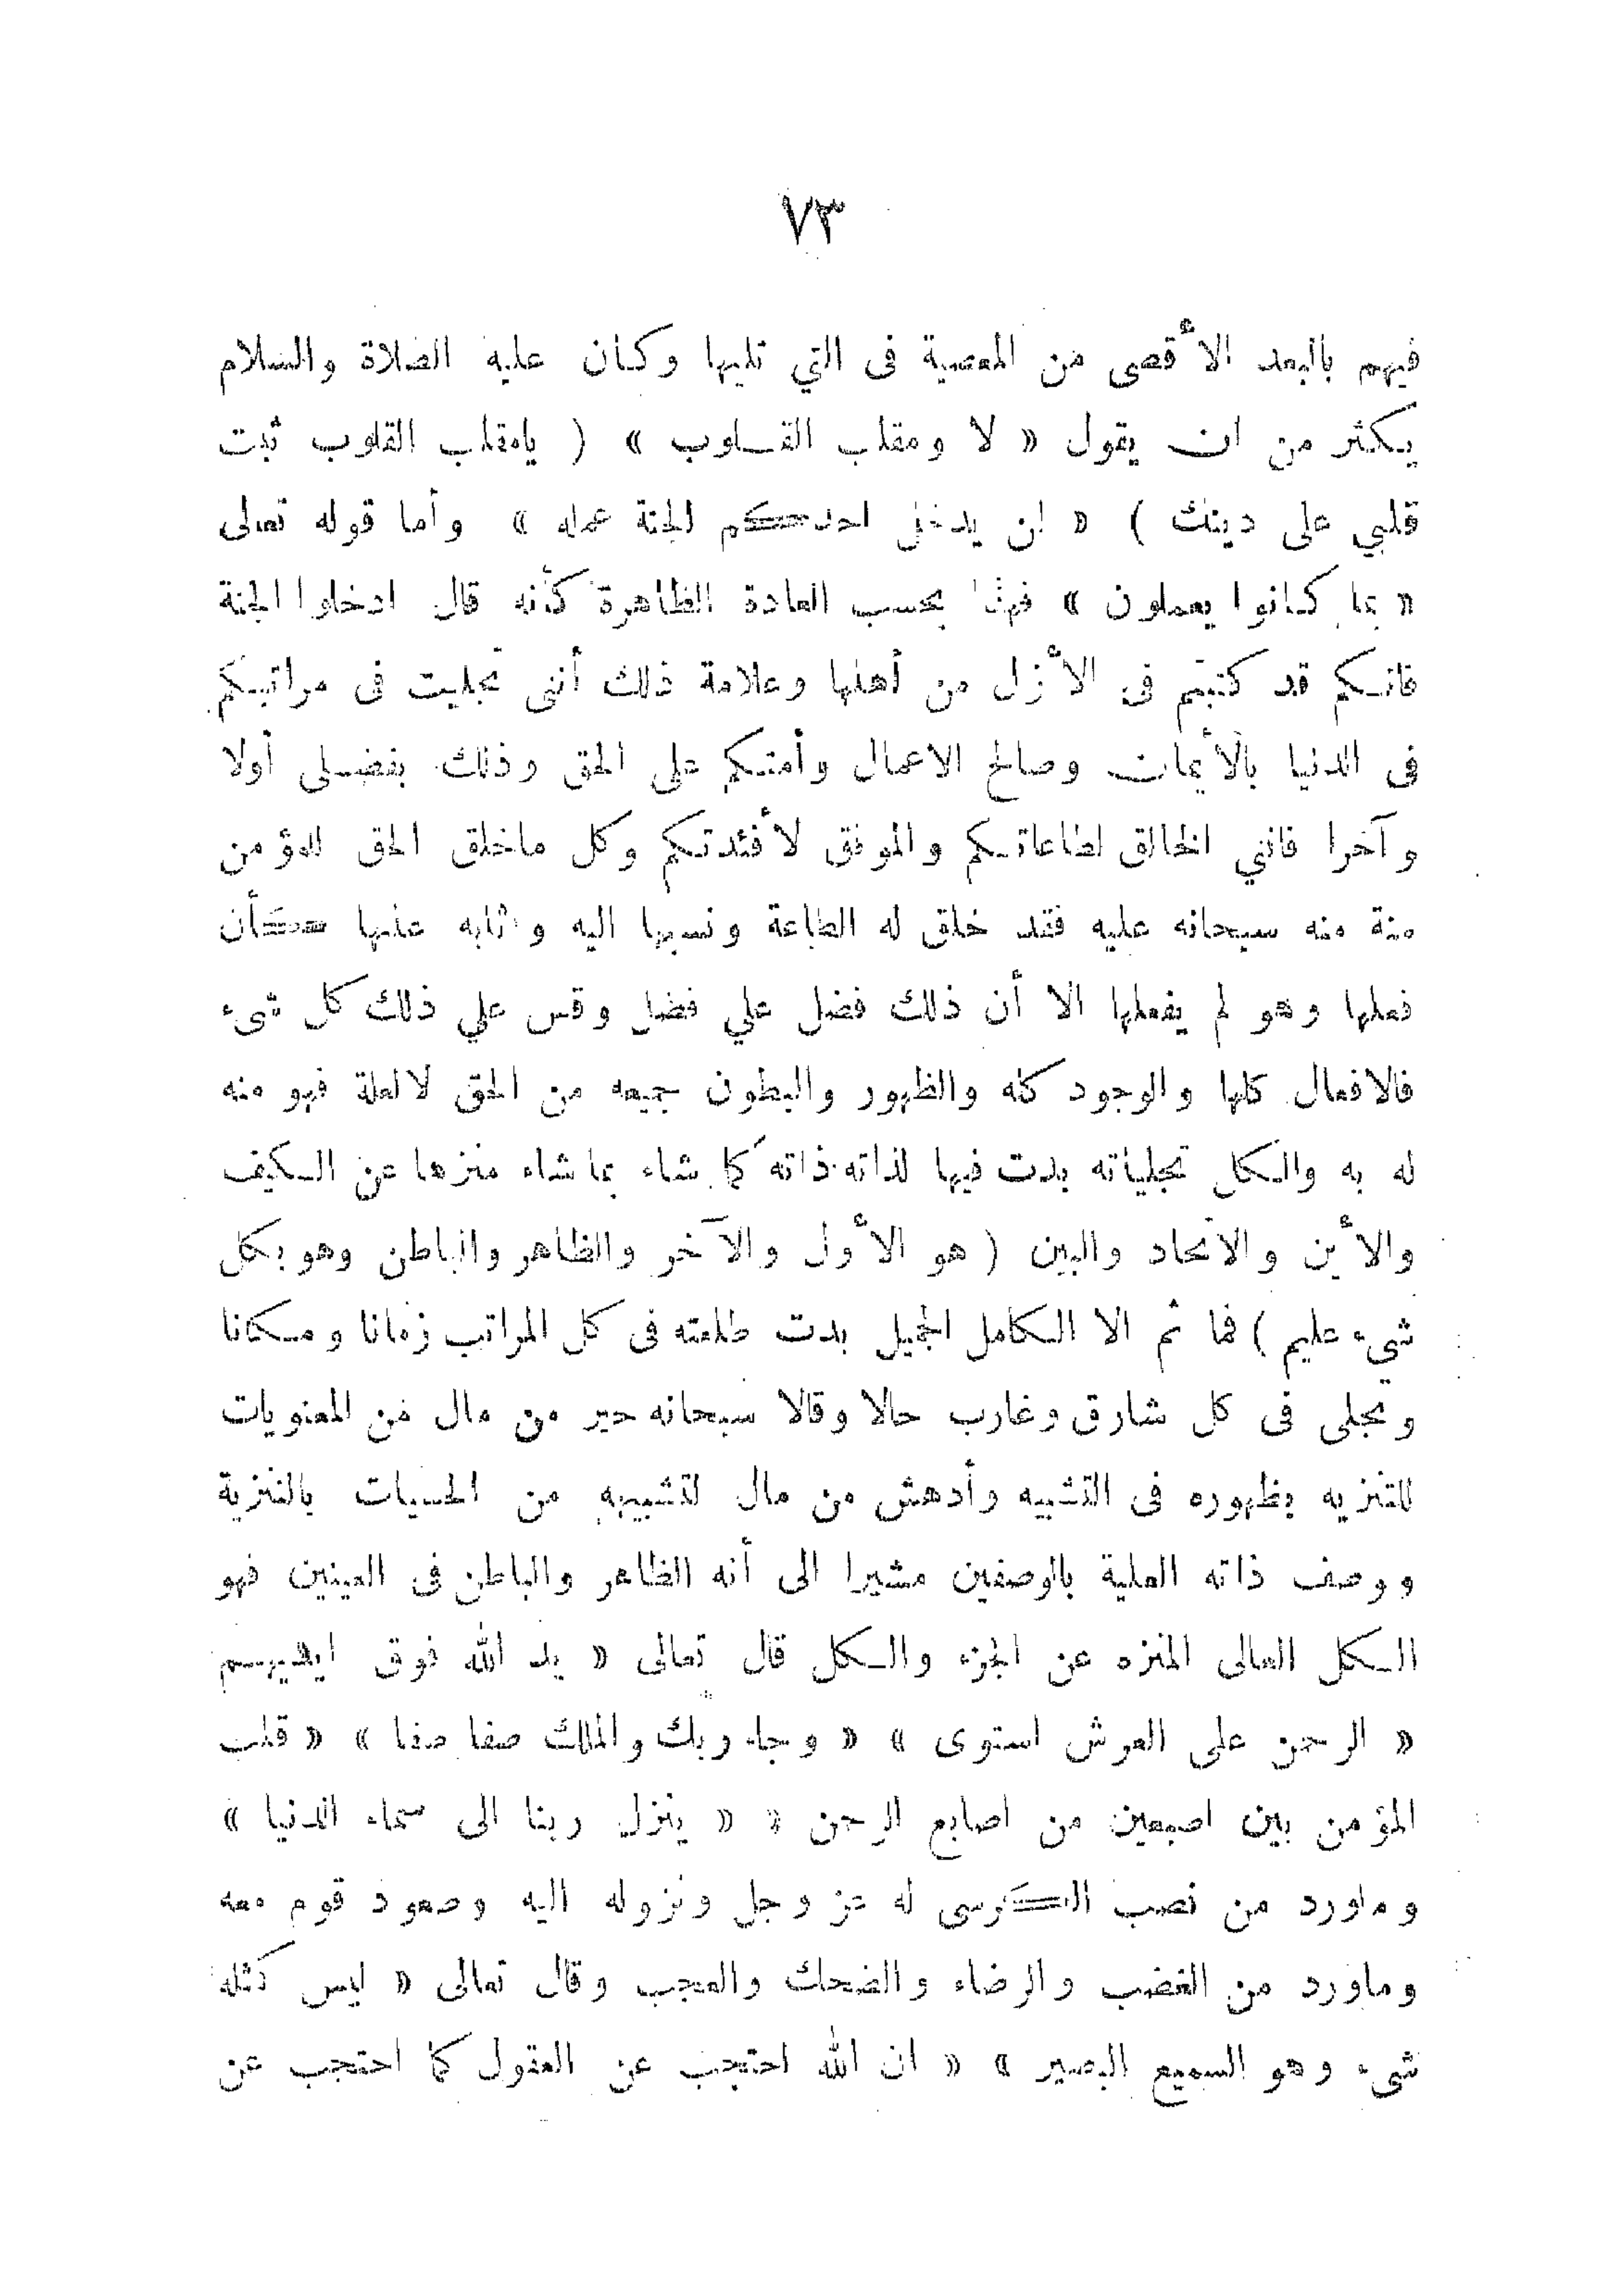 ٧٣
فيهم بالبعد الأقصى من المعصية فى التي تليها وكان عليه الصلاة والسلام
يكثر من ان يقول « لا ومقلب القلوب » ( يامقلب القلوب ثبت
قلبي على دينك ) « لن يدخل احدكم الجنة عمله » وأما قوله تعالى
« بما كانوا يعملون » فهذا بحسب العادة الظاهرة كأنه قال ادخلوا الجنة
فانكم قد كتبتم فى الأزل من أهلها وعلامة ذلك أننى تجليت فى مراتبكم
فى الدنيا بالأيمان وصالح الاعمال وأمتكم على الحق وذلك بفضلى أولا
وآخرا فانني الخالق لطاعاتكم والموفق لأفئدتكم وكل ماخلق الحق للمؤمن
منة منه سبحانه عليه فقد خلق له الطاعة ونسبها اليه واثابه عليها كأن
فعلها وهو لم يفعلها الا أن ذلك فضل علي فضل وقس علي ذلك كل شىء
فالافعال كلها والوجود كله والظهور والبطون جميعه من الحق لالعلة فهو منه
له به والكل تجلياته بدت فيها لذاته ذاته كما شاء بما شاء منزها عن الكيف
والأين والاتحاد والبين ( هو الأول والآخر والظاهر والباطن وهو بكل
شيء عليم ) فما ثم الا الكامل الجميل بدت طلعته فى كل المراتب زمانا ومكانا
وتجلى فى كل شارق وغارب حالا وقالا سبحانه حير من مال من المعنويات
للتنزيه بظهوره فى التشبيه وأدهش من مال لتشبيهه من الحسيات بالتنزية
ووصف ذاته العلية بالوصفين مشيرا الى أنه الظاهر والباطن فى العينين فهو
الكل العالى المنزه عن الجزء والكل قال تعالى « يد الله فوق ايديهم
« الرحمن على العرش استوى » « وجاء ربك والملك صفا صفا » « قلب
المؤمن بين اصبعين من اصابع الرحمن « « ينزل ربنا الى سماء الدنيا »
وماورد من نصب الكرسى له عز وجل ونزوله اليه وصعود قوم معه
وماورد من الغضب والرضاء والضحك والعجب وقال تعالى « ليس كمثله
شىء وهو السميع البصير » « ان الله احتجب عن العقول كما احتجب عن